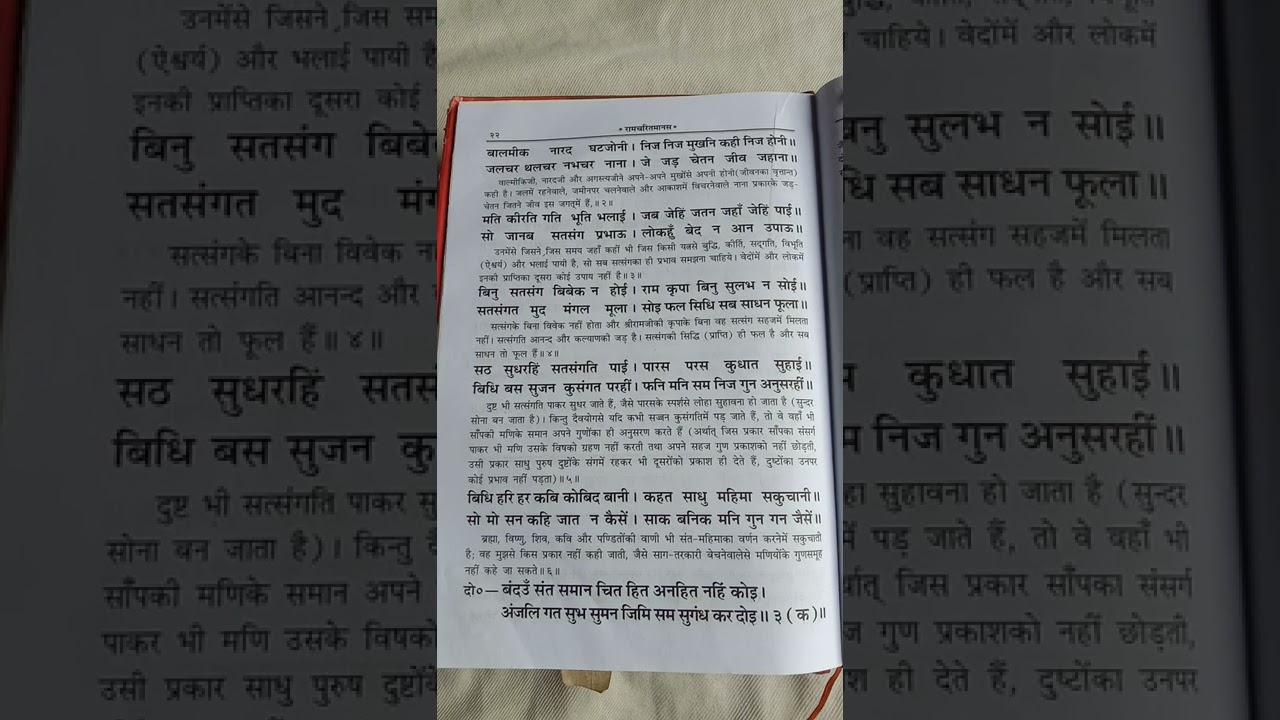 २२
* रामचरितमानस *
बालमीक नारद घटजोनी। निज निज मुखनि कही निज होनी॥
जलचर थलचर नभचर नाना। जे जड़ चेतन जीव जहाना॥
वाल्मीकिजी, नारदजी और अगस्त्यजीने अपने-अपने मुखोंसे अपनी होनी (जीवनका वृत्तान्त)
कही है। जलमें रहनेवाले, जमीनपर चलनेवाले और आकाशमें विचरनेवाले नाना प्रकारके जड़-
चेतन जितने जीव इस जगत्‌में हैं,॥२॥
मति कीरति गति भूति भलाई। जब जेहिं जतन जहाँ जेहिं पाई॥
सो जानब सतसंग प्रभाऊ। लोकहुँ बेद न आन उपाऊ॥
उनमेंसे जिसने, जिस समय जहाँ कहीं भी जिस किसी यत्नसे बुद्धि, कीर्ति, सद्गति, विभूति
(ऐश्वर्य) और भलाई पायी है, सो सब सत्संगका ही प्रभाव समझना चाहिये। वेदोंमें और लोकमें
इनकी प्राप्तिका दूसरा कोई उपाय नहीं है॥३॥
बिनु सतसंग बिबेक न होई। राम कृपा बिनु सुलभ न सोई॥
सतसंगत मुद मंगल मूला। सोइ फल सिधि सब साधन फूला॥
सत्संगके बिना विवेक नहीं होता और श्रीरामजीकी कृपाके बिना वह सत्संग सहजमें मिलता
नहीं। सत्संगति आनन्द और कल्याणकी जड़ है। सत्संगकी सिद्धि (प्राप्ति) ही फल है और सब
साधन तो फूल हैं॥४॥
सठ सुधरहिं सतसंगति पाई। पारस परस कुधात सुहाई॥
बिधि बस सुजन कुसंगत परहीं। फनि मनि सम निज गुन अनुसरहीं॥
दुष्ट भी सत्संगति पाकर सुधर जाते हैं, जैसे पारसके स्पर्शसे लोहा सुहावना हो जाता है (सुन्दर
सोना बन जाता है)। किन्तु दैवयोगसे यदि कभी सज्जन कुसंगतिमें पड़ जाते हैं, तो वे वहाँ भी
साँपकी मणिके समान अपने गुणोंका ही अनुसरण करते हैं (अर्थात् जिस प्रकार साँपका संसर्ग
पाकर भी मणि उसके विषको ग्रहण नहीं करती तथा अपने सहज गुण प्रकाशको नहीं छोड़ती,
उसी प्रकार साधु पुरुष दुष्टोंके संगमें रहकर भी दूसरोंको प्रकाश ही देते हैं, दुष्टोंका उनपर
कोई प्रभाव नहीं पड़ता)॥५॥
बिधि हरि हर कबि कोबिद बानी। कहत साधु महिमा सकुचानी॥
सो मो सन कहि जात न कैसें। साक बनिक मनि गुन गन जैसें॥
ब्रह्मा, विष्णु, शिव, कवि और पण्डितोंकी वाणी भी संत-महिमाका वर्णन करनेमें सकुचाती
है; वह मुझसे किस प्रकार नहीं कही जाती, जैसे साग-तरकारी बेचनेवालेसे मणियोंके गुणसमूह
नहीं कहे जा सकते॥६॥
दो०— बंदउँ संत समान चित हित अनहित नहिं कोइ।
अंजलि गत सुभ सुमन जिमि सम सुगंध कर दोइ॥ ३ (क)॥